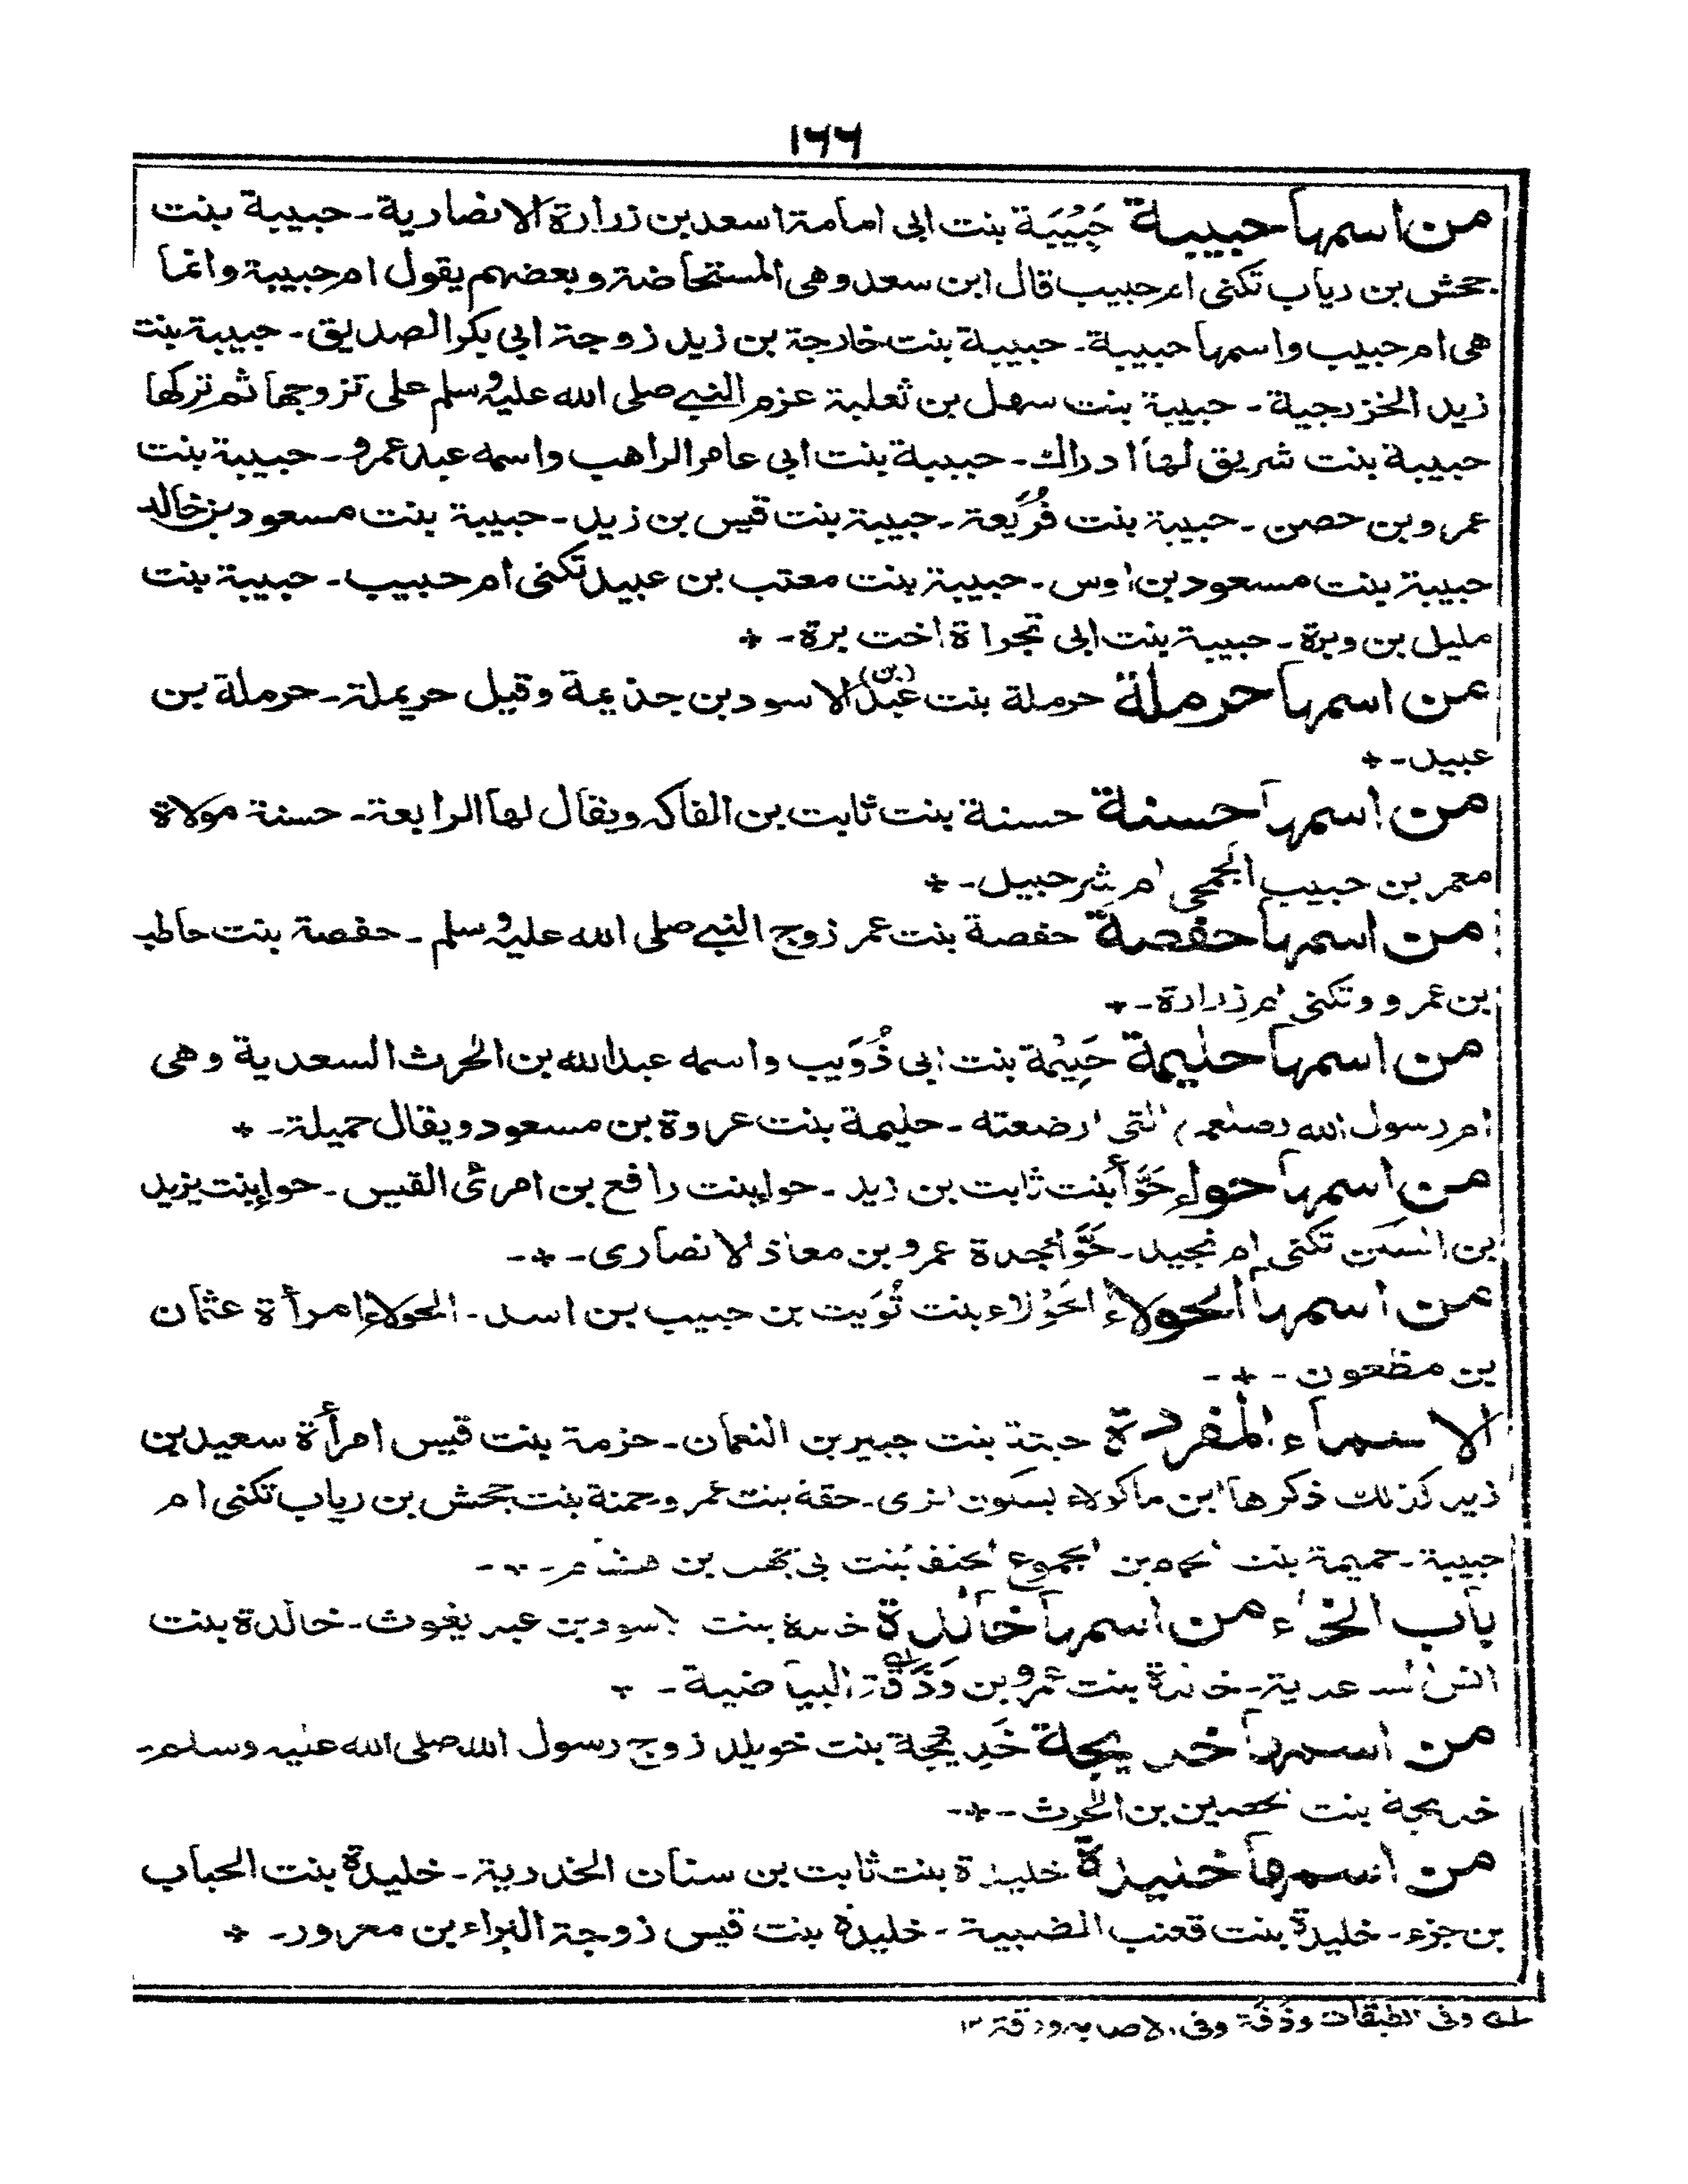 ١٦٦
من اسمها حبيبة حَبِيْبَة بنت ابى امامة اسعد بن زرارة الانصارية - حبيبة بنت
جحش بن رياب تكنى ام حبيب قال ابن سعد وهى المستحاضة وبعضهم يقول ام حبيبة وانما
هى ام حبيب واسمها حبيبة - حبيبة بنت خارجة بن زيد زوجة ابى بكر الصديق - حبيبة بنت
زيد الخزرجية - حبيبة بنت سهل بن ثعلبة عزم النبى صلى الله عليه وسلم على تزوجها ثم تركها
حبيبة بنت شريق لها ادراك - حبيبة بنت ابى عامر الراهب واسمه عبد عمرو - حبيبة بنت
عمرو بن حصن - حبيبة بنت فُرَيعة - حبيبة بنت قيس بن زيد - حبيبة بنت مسعود بن خالد
حبيبة بنت مسعود بن اوس - حبيبة بنت معتب بن عبيد تكنى ام حبيب - حبيبة بنت
مليل بن وبرة - حبيبة بنت ابى تجراة اخت برة - *
من اسمها حرملة حرملة بنت عبد (بن) الاسود بن جذيمة وقيل حريملة - حرملة بن
عبيد - *
من اسمها حسنة حسنة بنت ثابت بن الفاكه ويقال لها الرابعة - حسنة مولاة
معمر بن حبيب الجمحى ام شرحبيل - *
من اسمها حفصة حفصة بنت عمر زوج النبى صلى الله عليه وسلم - حفصة بنت حاطب
بن عمرو وتكنى ام زرارة - *
من اسمها حليمة حَلِيْمة بنت ابى ذُوَيب واسمه عبد الله بن الحرث السعدية وهى
ام رسول الله التى ارضعته - حليمة بنت عروة بن مسعود ويقال حميلة - *
من اسمها حواء حَوَّأ بنت ثابت بن زيد - حواء بنت رافع بن امرئ القيس - حواء بنت يزيد
بن السكن تكنى ام نجيد - حَوَّاء جدة عمرو بن معاذ لانصارى - * -
من اسمها الحولاء الحَوْلاء بنت تُوَيت بن حبيب بن اسد - الحولاء امرأة عثمان
بن مظعون - * -
الاسماء المفردة حبتة بنت جبير بن النعمان - حزمة بنت قيس امرأة سعيد بن
زيد كذلك ذكرها ابن ماكولاء بسكون الزى - حقة بنت عمرو - حمنة بنت جحش بن رياب تكنى ام
حبيبة - حميمة بنت بن الجموع بنت ابى بن هشام - * -
باب الخاء من اسمها خالدة خالدة بنت الاسود بن عبد يغوث - خالدة بنت
انس الساعدية - خالدة بنت عمرو بن وَذَقَة البياضية - *
من اسمها خديجة خَدِيجة بنت خويلد زوج رسول الله صلى الله عليه وسلم -
خديجة بنت الحصين بن الحرث - * -
من اسمها خليدة خليدة بنت ثابت بن سنان الخدرية - خليدة بنت الحباب
بن جزء - خليدة بنت قعنب الضبية - خليدة بنت قيس زوجة البراء بن معرور - *
له وفى الطبقات وذفة وفى الاصابه ودقة ١٢